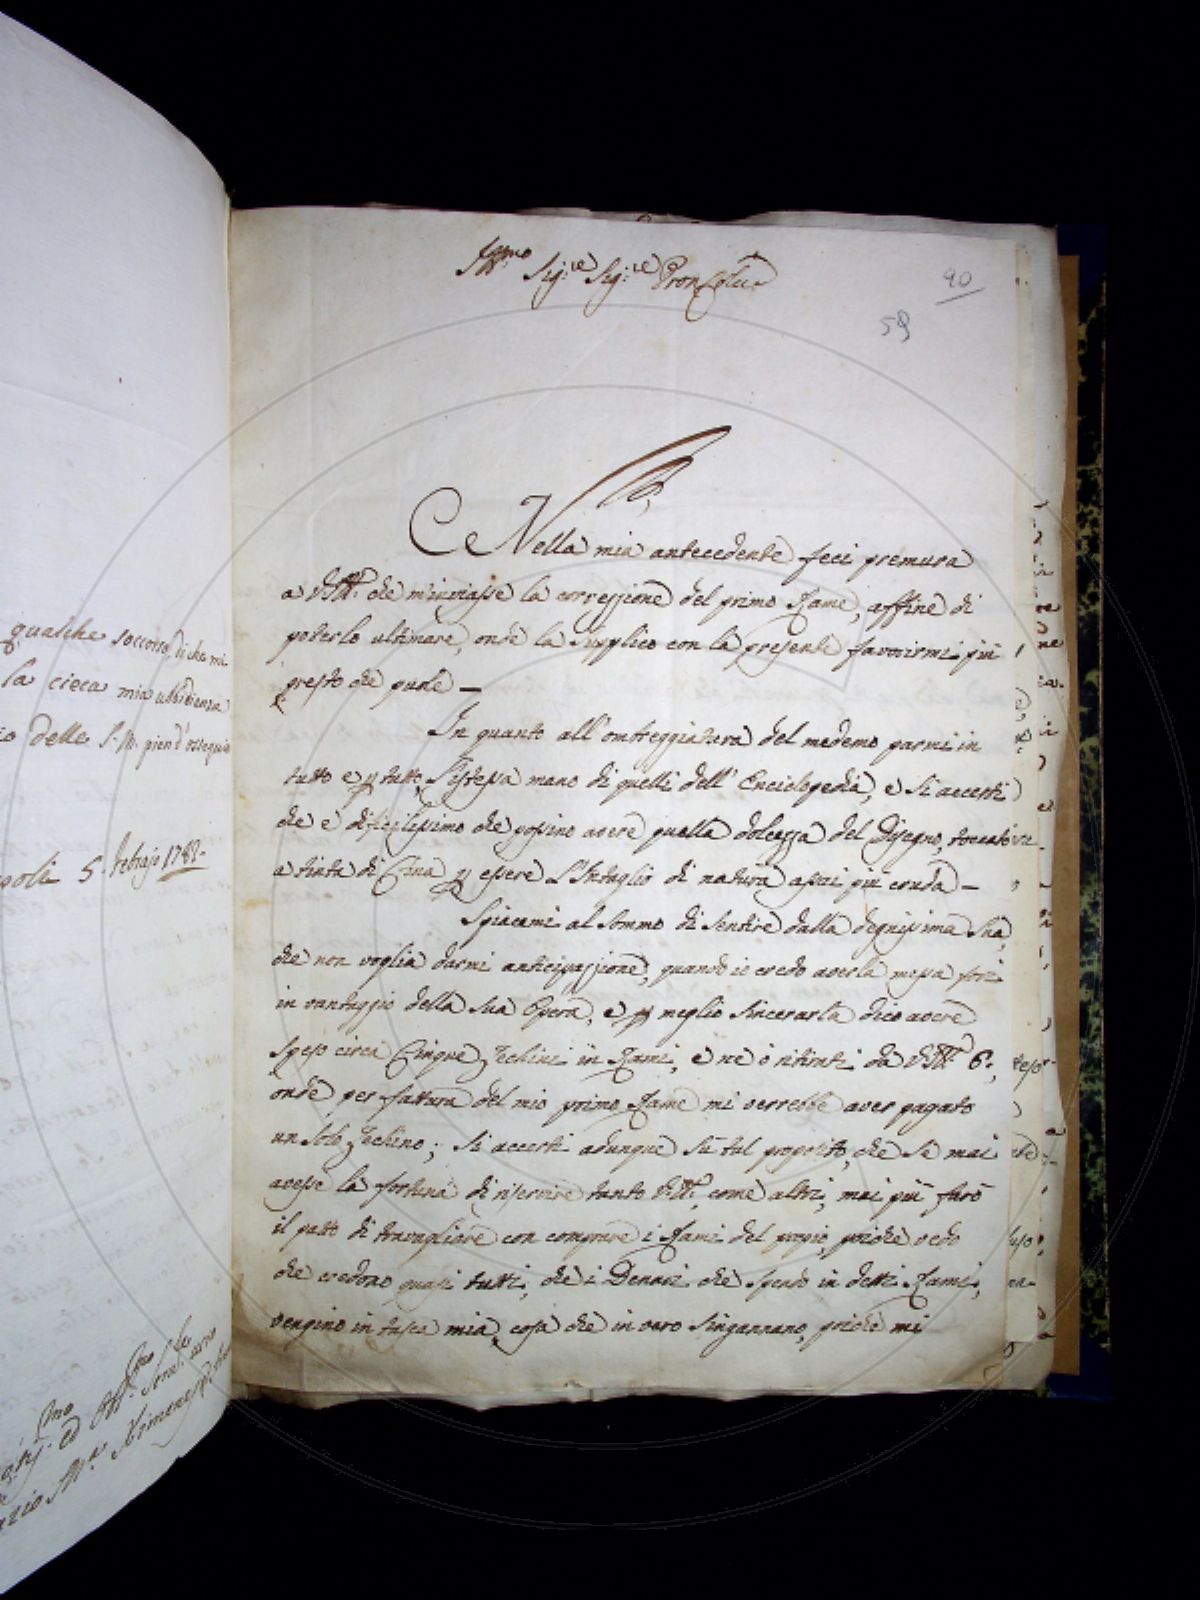 qualche soccorso, di che mi
la cieca mia ubbidienza
delle S. M. pien d'ossequio
5. Febrajo 1782.
Ill.mo Sig.re Sig.re Pron Col.mo
90
58
Nella mia antecedente feci premura
a V.S. Ill. che m'inviasse la correzzione del primo Rame, affine di
poterlo ultimare, onde la supplico con la presente favorirmi più
presto che puole —
In quanto all'ombreggiatura del medemo parmi in
tutto e p tutto l'istessa mano di quelli dell'Enciclopedia, e si accerti
che è dificilissimo che possino avere quella dolcezza del Disegno, toccato
a tinta di Cina p essere l'Intaglio di natura assai più cruda —
Spiacemi al sommo di sentire dalla degnissima Sua,
che non voglia darmi anticipazzione, quando io credo averla mossa
in vantaggio della sua Opera, e p meglio sincerarla dico avere
speso circa Cinque Zechini in Rami, e ne ò ritirati da V.S. Ill. 6.,
onde per fattura del mio primo Rame mi verrebbe aver pagato
un solo Zechino; si accerti adunque sù tal proposito, che se mai
avesse la fortuna di riservire tanto V.S. Ill., come altri, mai più farò
il patto di travagliare con comprare i Rami del propio, poiche vedo
che credono quasi tutti, che i Denari che spendo in detti Rami,
venghino in tasca mia, cosa che in vero singannano, poiche mi